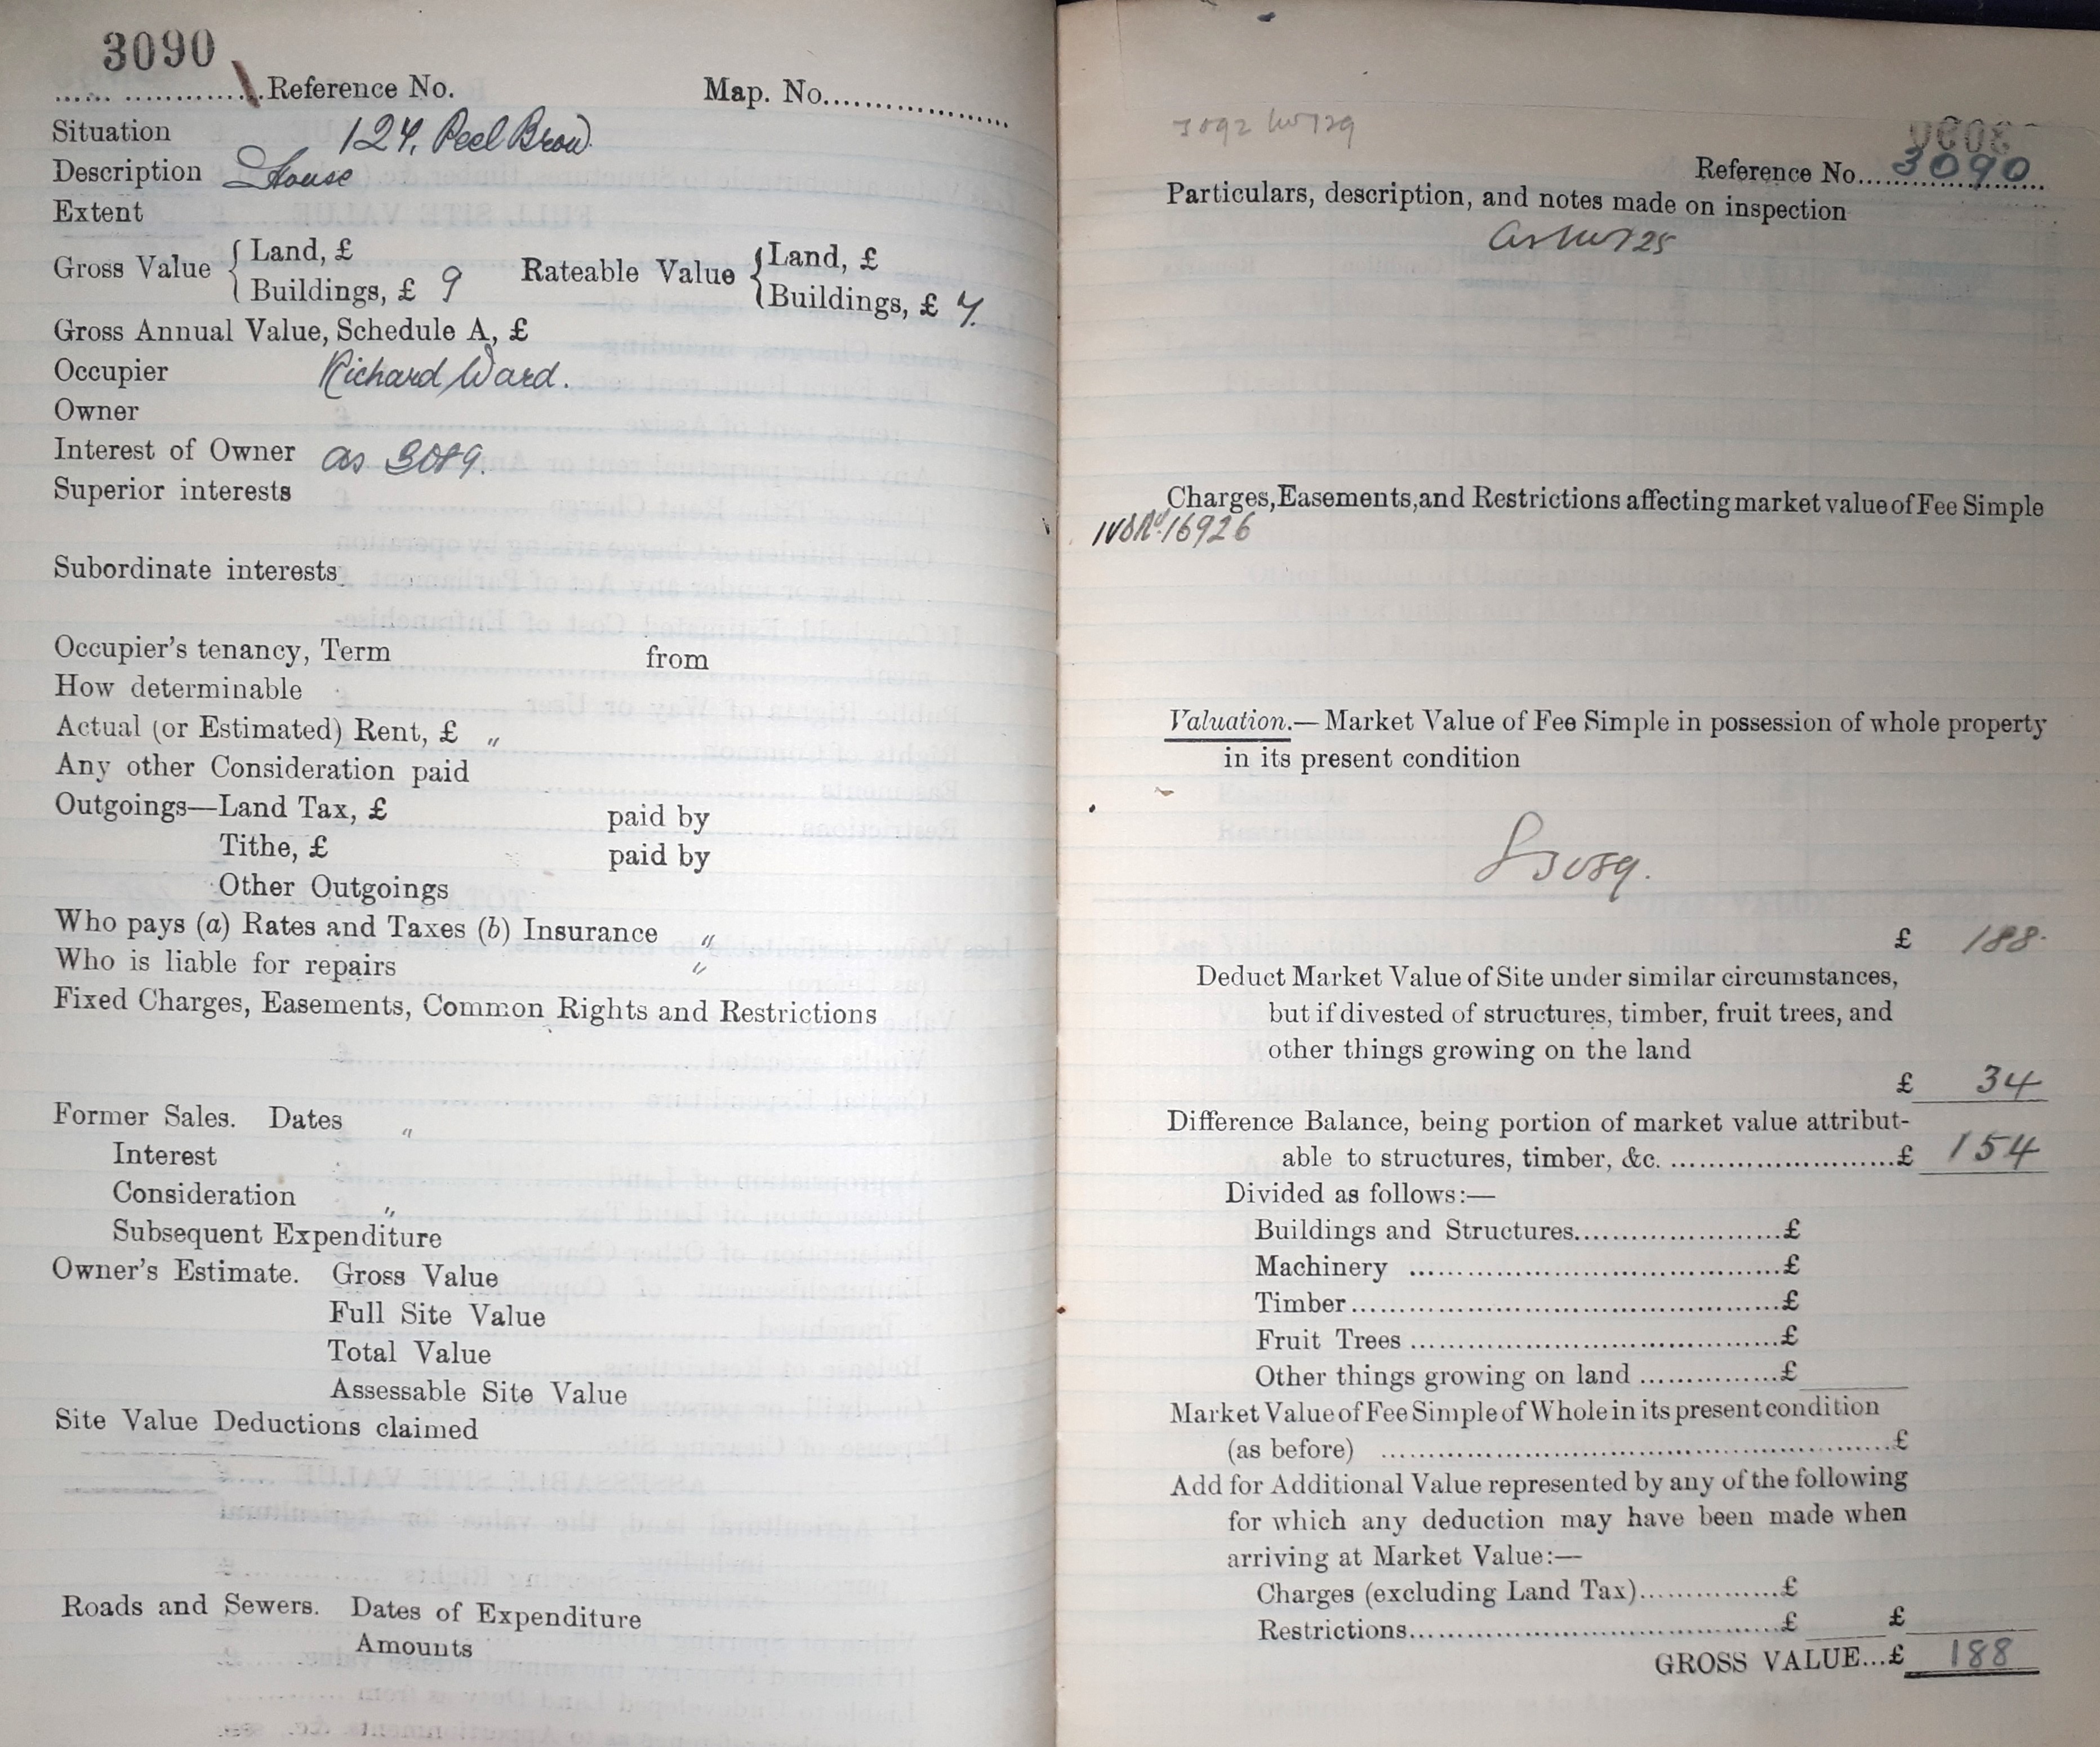 3090
Reference No. Map. No.
Situation 127, Peel Brow.
Description House
Extent
Gross Value { Land, £ Rateable Value { Land, £
Buildings, £ 9 Buildings, £ 7.
Gross Annual Value, Schedule A, £
Occupier Richard Ward.
Owner
Interest of Owner as 3089.
Superior interests
Subordinate interests
Occupier's tenancy, Term from
How determinable
Actual (or Estimated) Rent, £ "
Any other Consideration paid
Outgoings—Land Tax, £ paid by
Tithe, £ paid by
Other Outgoings
Who pays (a) Rates and Taxes (b) Insurance "
Who is liable for repairs "
Fixed Charges, Easements, Common Rights and Restrictions
Former Sales. Dates "
Interest
Consideration "
Subsequent Expenditure
Owner's Estimate. Gross Value
Full Site Value
Total Value
Assessable Site Value
Site Value Deductions claimed
Roads and Sewers. Dates of Expenditure
Amounts
Reference No. 3090
Particulars, description, and notes made on inspection
Charges, Easements, and Restrictions affecting market value of Fee Simple
16926
Valuation.—Market Value of Fee Simple in possession of whole property
in its present condition
£ 188.
Deduct Market Value of Site under similar circumstances,
but if divested of structures, timber, fruit trees, and
other things growing on the land
£ 34
Difference Balance, being portion of market value attribut-
able to structures, timber, &c. £ 154
Divided as follows:—
Buildings and Structures £
Machinery £
Timber £
Fruit Trees £
Other things growing on land £
Market Value of Fee Simple of Whole in its present condition
(as before) £
Add for Additional Value represented by any of the following
for which any deduction may have been made when
arriving at Market Value:—
Charges (excluding Land Tax) £
Restrictions £ £
GROSS VALUE...£ 188